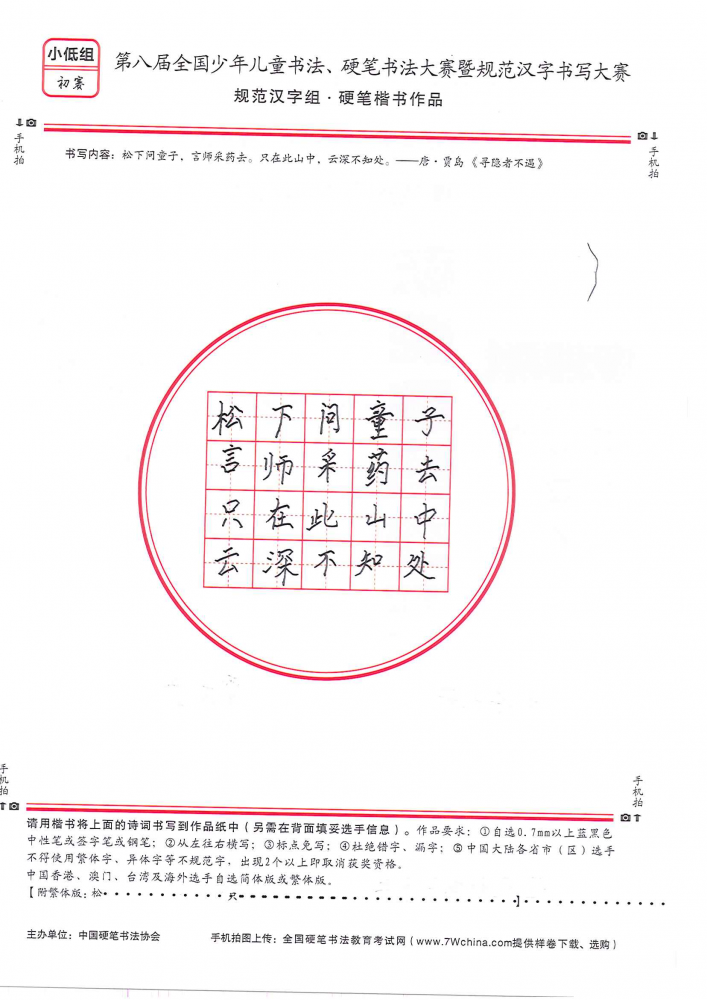 小低组
初赛
第八届全国少年儿童书法、硬笔书法大赛暨规范汉字书写大赛
规范汉字组·硬笔楷书作品
手机拍
手机拍
书写内容：松下问童子，言师采药去。只在此山中，云深不知处。——唐·贾岛《寻隐者不遇》
松下问童子
言师采药去
只在此山中
云深不知处
手机拍
手机拍
请用楷书将上面的诗词书写到作品纸中（另需在背面填妥选手信息）。作品要求：①自选0.7mm以上蓝黑色
中性笔或签字笔或钢笔；②从左往右横写；③标点免写；④杜绝错字、漏字；⑤中国大陆各省市（区）选手
不得使用繁体字、异体字等不规范字，出现2个以上即取消获奖资格。
中国香港、澳门、台湾及海外选手自选简体版或繁体版。
【附繁体版：松····················只·····························】··············
主办单位：中国硬笔书法协会
手机拍图上传：全国硬笔书法教育考试网（www.7Wchina.com提供样卷下载、选购）